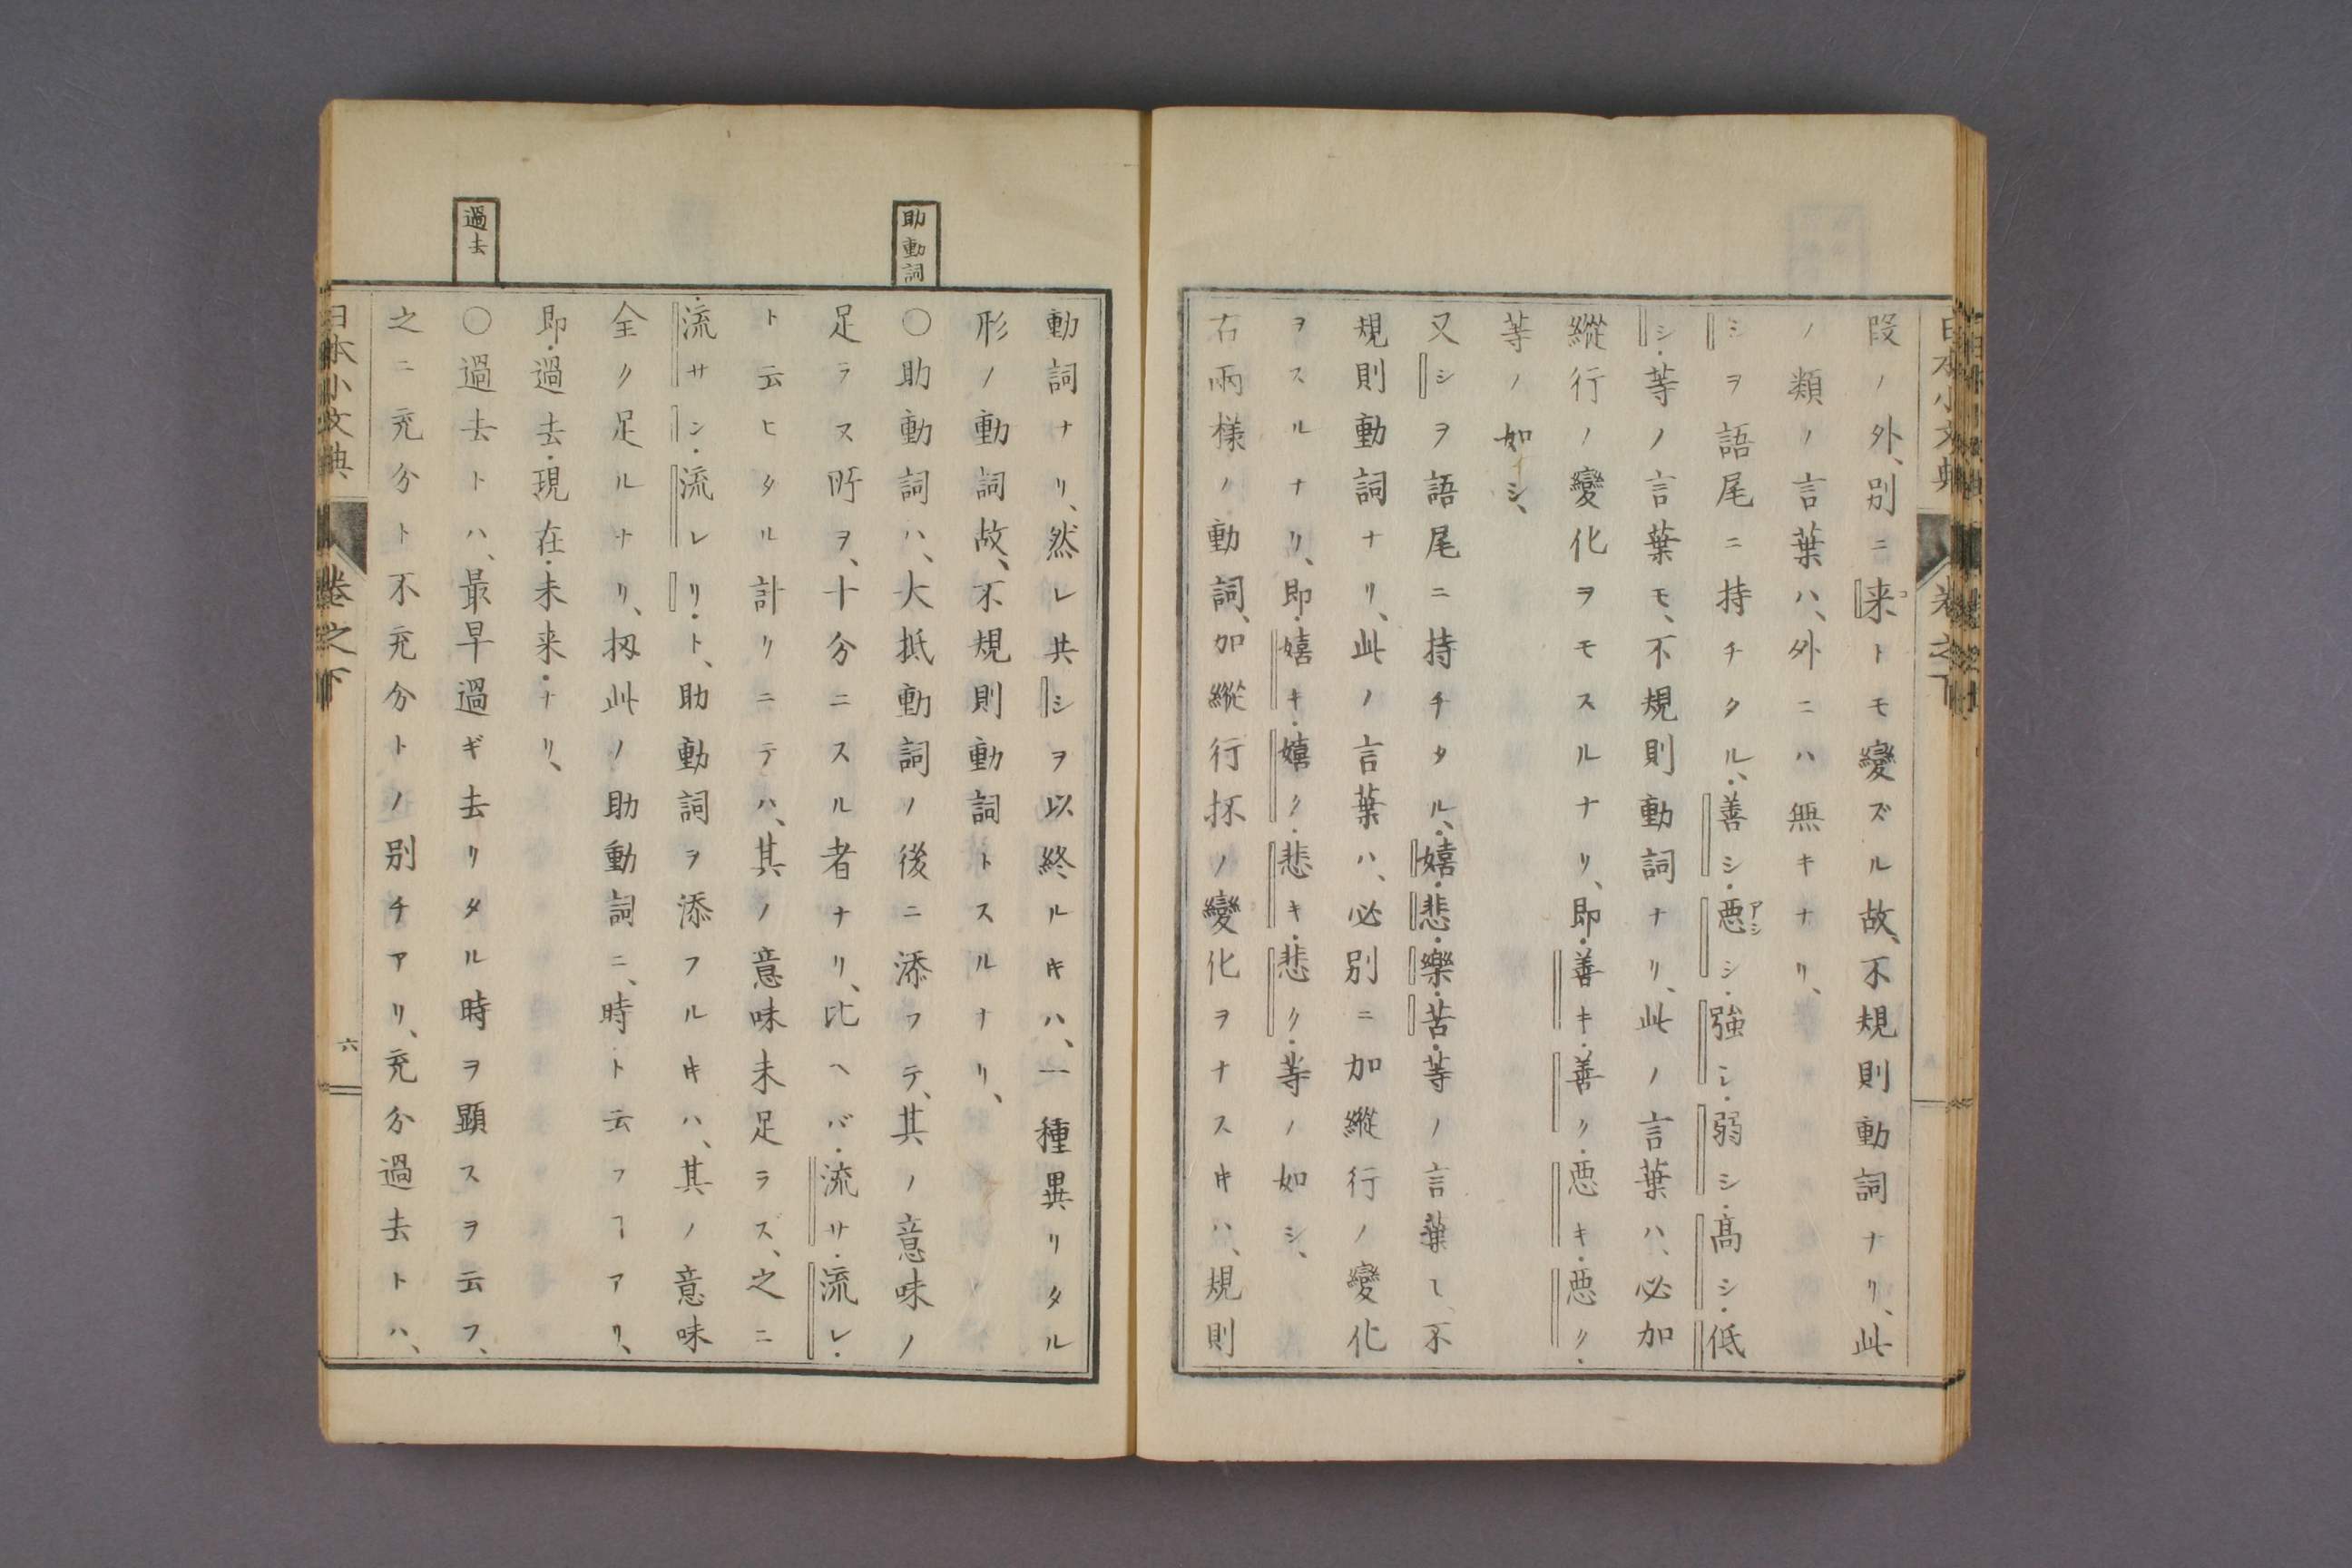 日本小文典 卷之下
段ノ外、別ニ来トモ變ズル故、不規則動詞ナリ、此
コ
ノ類ノ言葉ハ、外ニハ無キナリ、
シヲ語尾ニ持チタル、善シ・悪シ・強シ・弱シ・高シ・低
アシ
シ・等ノ言葉モ、不規則動詞ナリ、此ノ言葉ハ、必加
縱行ノ變化ヲモスルナリ、即・善キ・善ク・悪キ・悪ク・
等ノ如シ、
又シヲ語尾ニ持チタル、嬉・悲・樂・苦・等ノ言葉モ、不
規則動詞ナリ、此ノ言葉ハ、必別ニ加縱行ノ變化
ヲスルナリ、即・嬉キ・嬉ク・悲キ・悲ク・等ノ如シ、
右兩様ノ動詞、加縱行抔ノ變化ヲナスキハ、規則
動詞ナリ、然レ共シヲ以終ルキハ、一種異リタル
形ノ動詞故、不規則動詞トスルナリ、
助動詞
〇助動詞ハ、大抵動詞ノ後ニ添フテ、其ノ意味ノ
足ラヌ所ヲ、十分ニスル者ナリ、比ヘバ・流サ・流レ・
ト云ヒタル計リニテハ、其ノ意味未足ラズ、之ニ
流サン・流レリ・ト、助動詞ヲ添フルキハ、其ノ意味
全ク足ルナリ、扨此ノ助動詞ニ、時ト云フヿアリ、
即・過去・現在・未来・ナリ、
過去
〇過去トハ、最早過ギ去リタル時ヲ顕スヲ云フ、
之ニ充分ト不充分トノ別チアリ、充分過去トハ、
日本小文典 卷之下 六